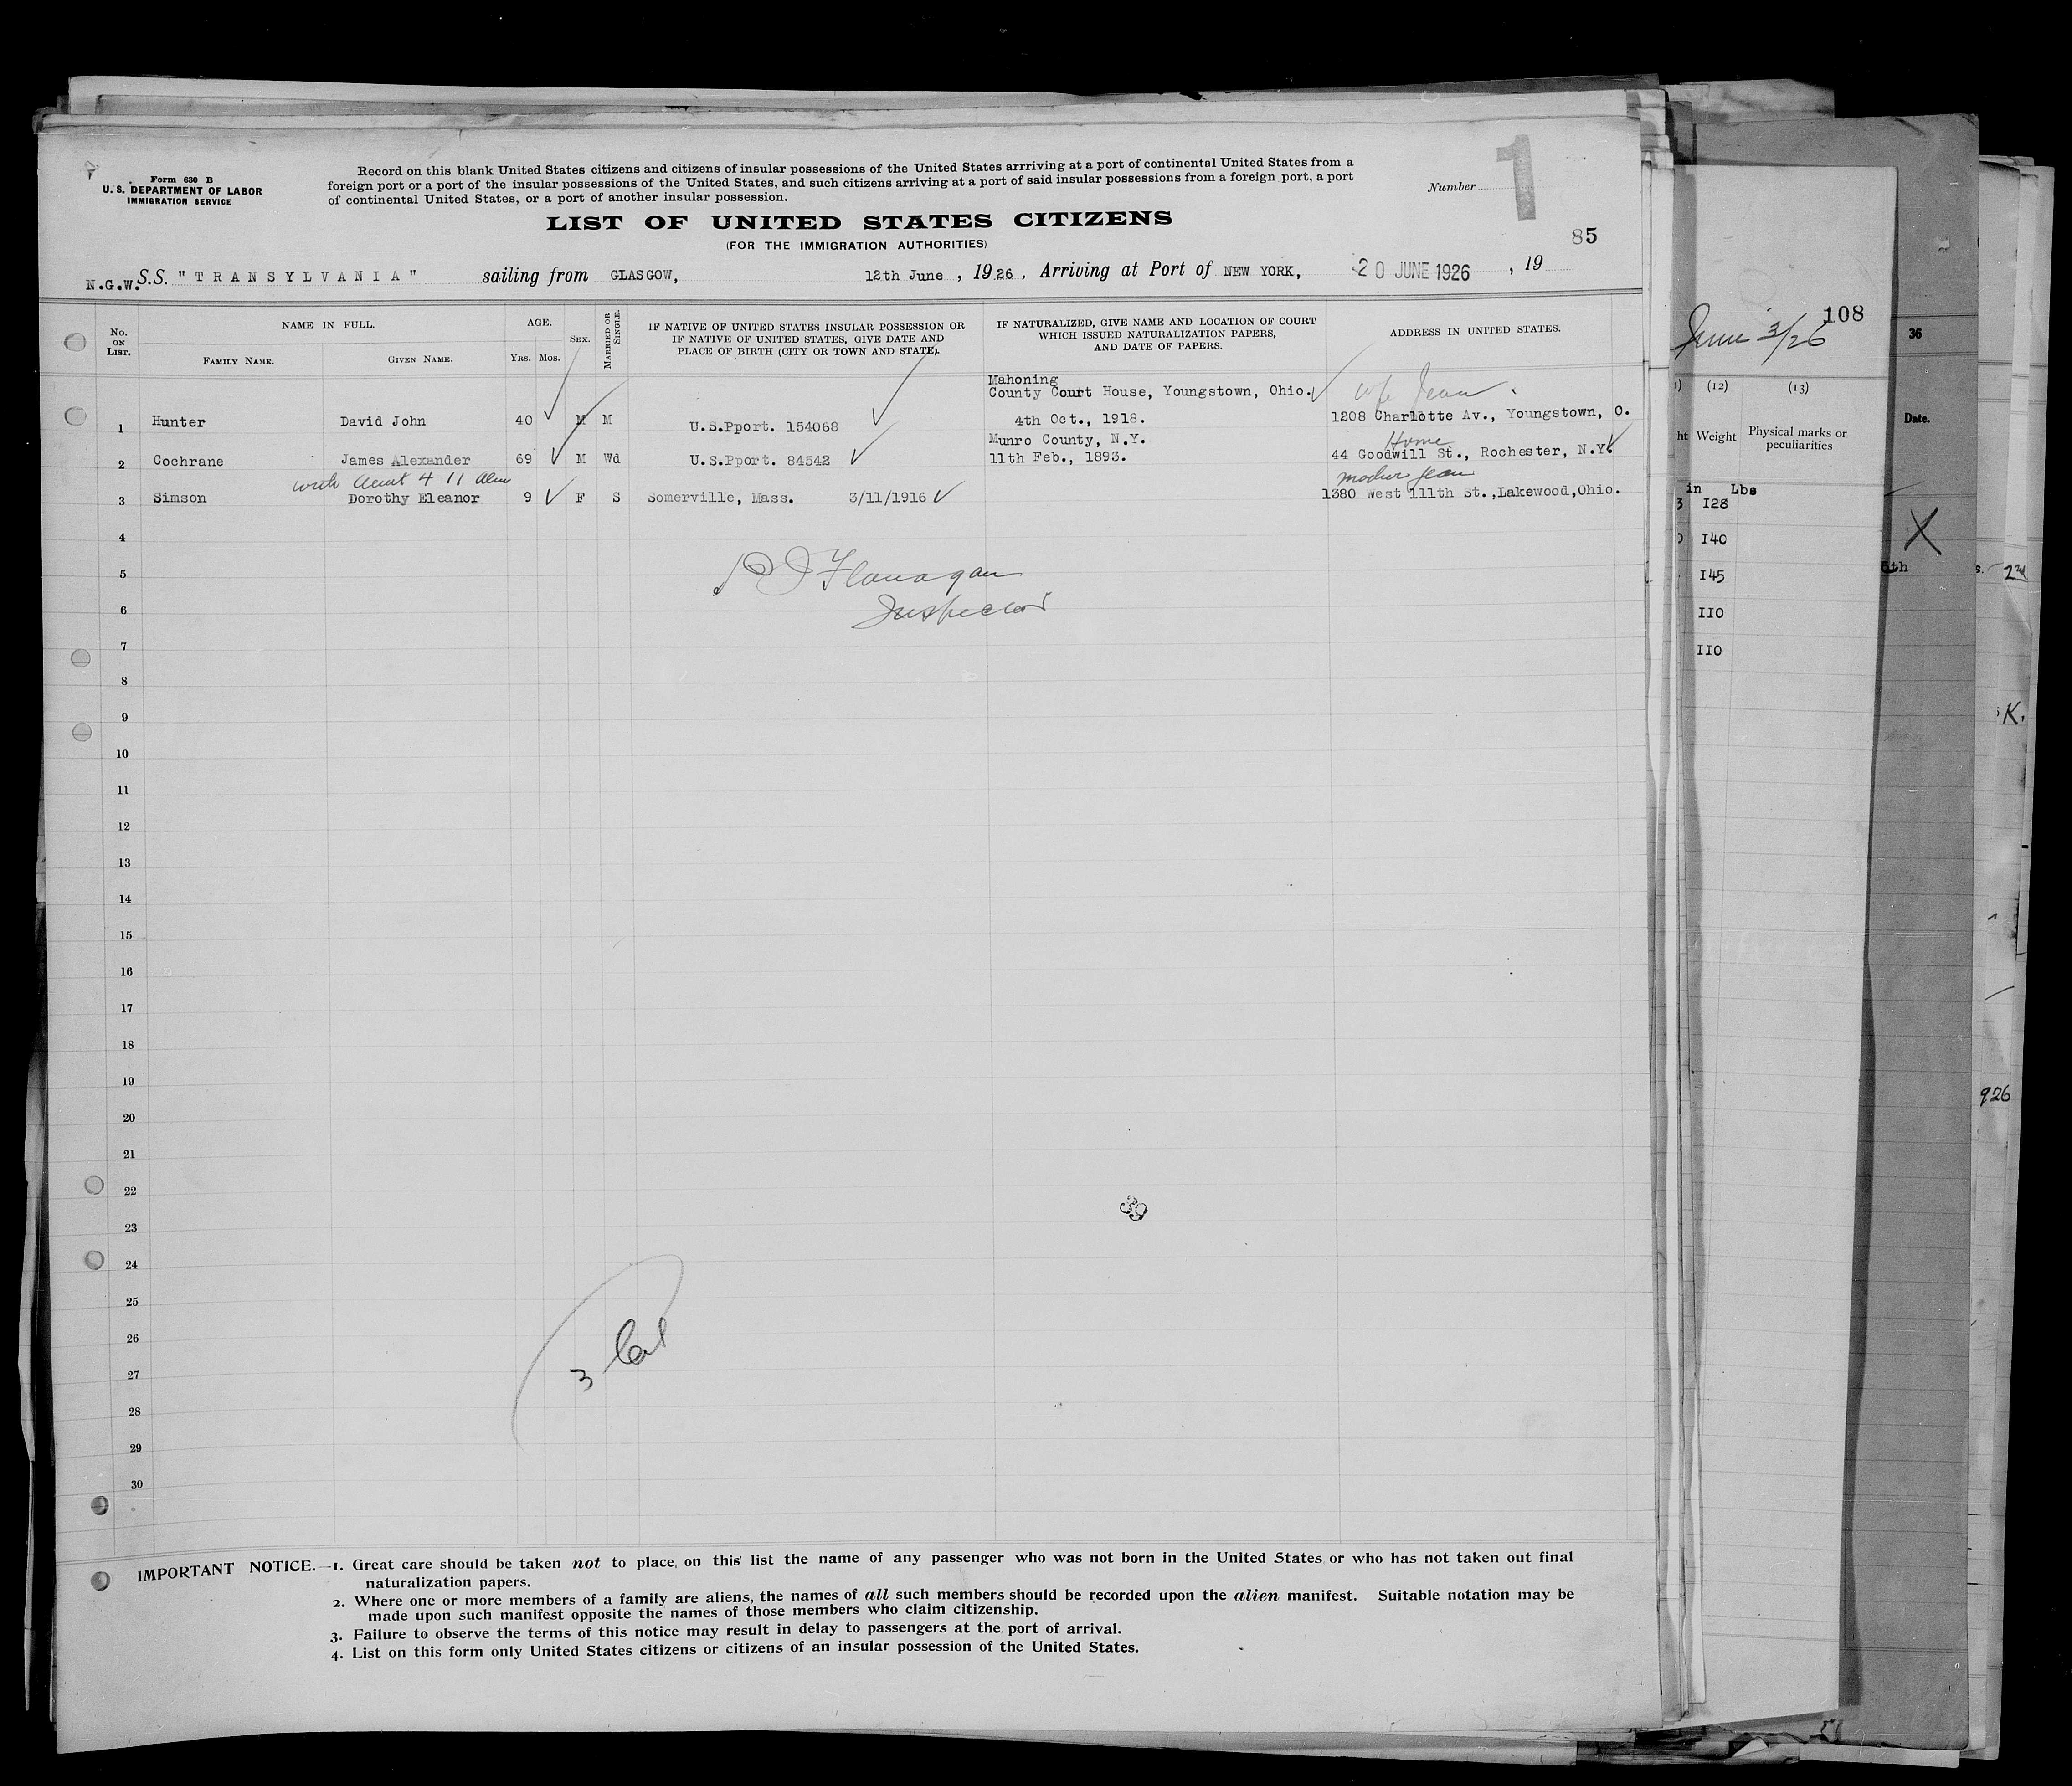 Form 630 B
U. S. DEPARTMENT OF LABOR
IMMIGRATION SERVICE
Record on this blank United States citizens and citizens of insular possessions of the United States arrriving at a port of continental United States from a
foreign port or a port of the insular possessions of the United States, and such citizens arriving at a port of said insular possessions from a foreign port, a port
of continental United States, or a port of another insular possession.
Number
1
LIST OF UNITED STATES CITIZENS
(FOR THE IMMIGRATION AUTHORITIES)
85
N.G.W. S.S. "TRANSYLVANIA" sailing from GLASGOW, 12th June, 1926. Arriving at Port of NEW YORK, 20 JUNE 1926, 19
No. ON LIST.
NAME IN FULL.
FAMILY NAME.
GIVEN NAME.
AGE.
YRS. MOS.
SEX.
MARRIED OR SINGLE.
IF NATIVE OF UNITED STATES INSULAR POSSESSION OR
IF NATIVE OF UNITED STATES, GIVE DATE AND
PLACE OF BIRTH (CITY OR TOWN AND STATE).
IF NATURALIZED, GIVE NAME AND LOCATION OF COURT
WHICH ISSUED NATURALIZATION PAPERS,
AND DATE OF PAPERS.
ADDRESS IN UNITED STATES.
Mahoning
County Court House, Youngstown, Ohio. wife Jean
1 Hunter David John 40 M M U.S.Pport. 154068 4th Oct., 1918. 1208 Charlotte Av., Youngstown, O.
Munro County, N.Y. Home
2 Cochrane James Alexander 69 M Wd U.S.Pport. 84542 11th Feb., 1893. 44 Goodwill St., Rochester, N.Y.
with Aunt 4 11 mother Jean
3 Simson Dorothy Eleanor 9 F S Somerville, Mass. 3/11/1916 1380 West 111th St.,Lakewood,Ohio.
4
5 Flanagan
6 Inspector
7
8
9
10
11
12
13
14
15
16
17
18
19
20
21
22
23
24
25
26
27
28
29
30
39
3
IMPORTANT NOTICE.—1. Great care should be taken not to place on this list the name of any passenger who was not born in the United States or who has not taken out final
naturalization papers.
2. Where one or more members of a family are aliens, the names of all such members should be recorded upon the alien manifest. Suitable notation may be
made upon such manifest opposite the names of those members who claim citizenship.
3. Failure to observe the terms of this notice may result in delay to passengers at the port of arrival.
4. List on this form only United States citizens or citizens of an insular possession of the United States.
108
June 3/26
(12) (13)
Weight
Physical marks or
peculiarities
in Lbs
128
140
145
110
110
36
Date.
X
2nd
K.
926